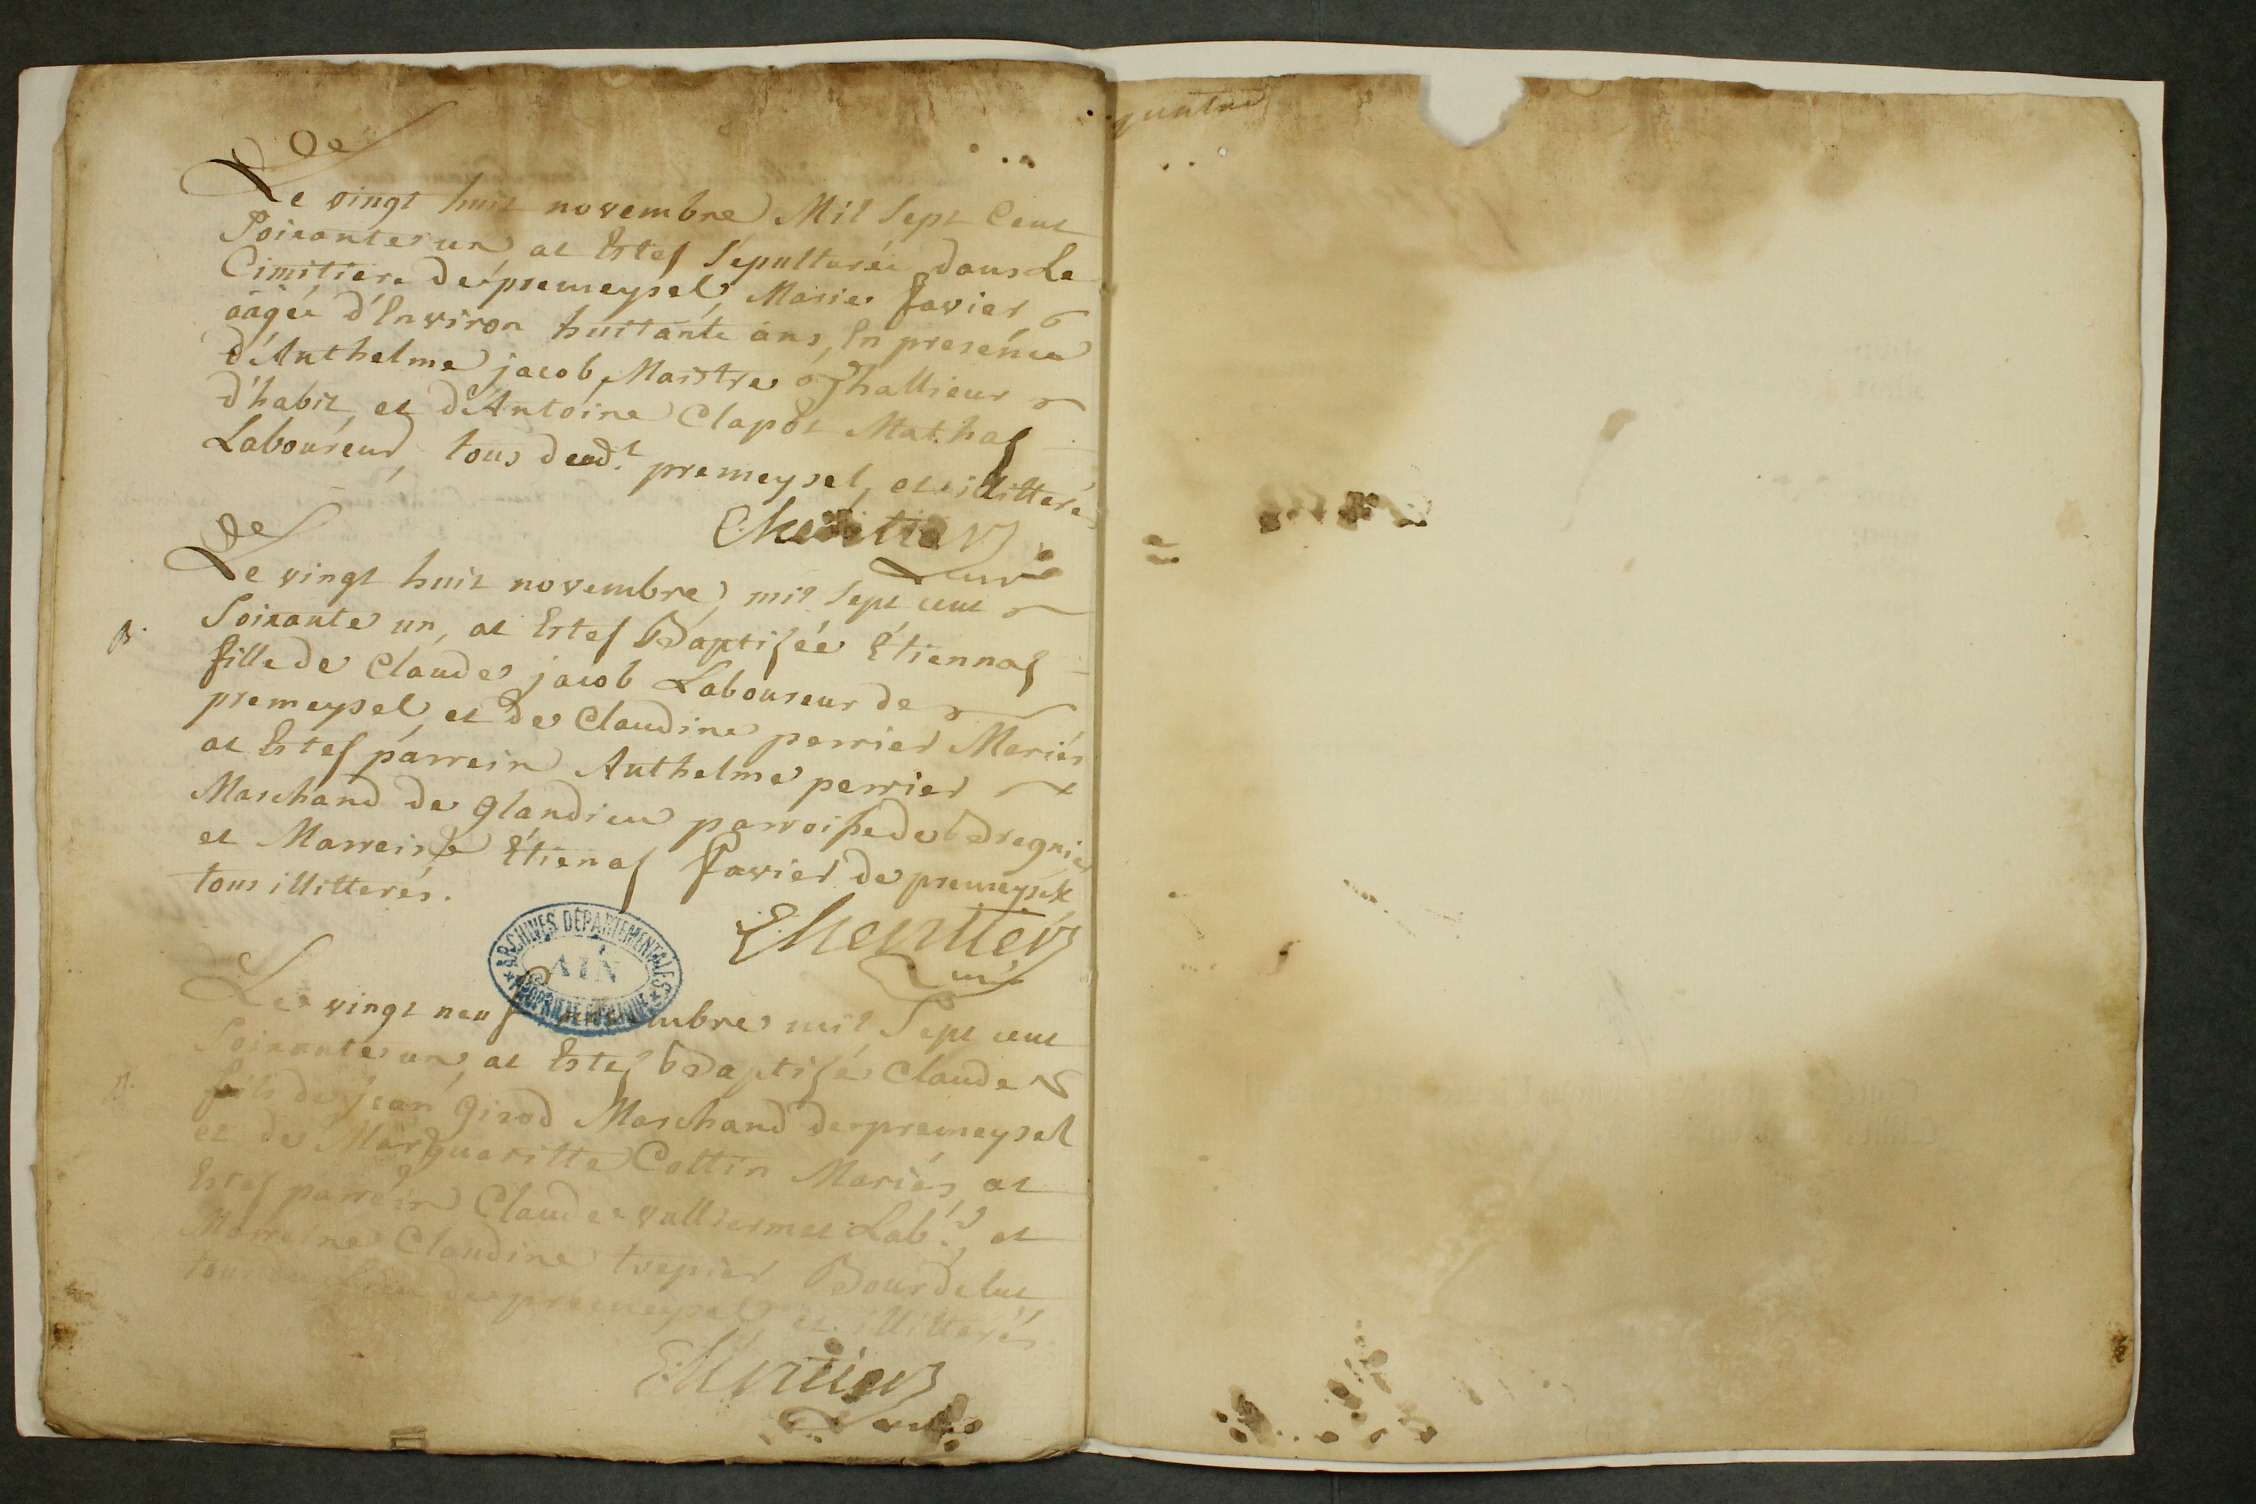 Le vingt huit novembre Mil Sept Cent
Soixante un at Esté Sépulturée dans Le
Cimitiere de premeysel, Marie Favier
aagée d'Environ huitante ans, En presence
d'Anthelme jacob, Maistre Thallieur
d'habit, et d'Antoine Clapot Mathaf
Laboureur, tous deud.t premeysel, et illitterés
Le vingt huit novembre mil Sept cent
B.
Soixante un, at Esté Baptisée Étienna
fille de Claude jacob Laboureur de
premeysel, et de Claudine perrier Mariés
at Esté parrein Anthelme perrier
Marchand de glandieu parroisse de Bregnie
et Marreine Étiena Favier de premeysel
tous illitterés.
ARCHIVES DÉPARTEMENTALES
AIN
PROPRIÉTÉ PUBLIQUE
Le vingt neuf novembre mil Sept cent
Soixante un, at Esté Baptisé Claude
fils de jean girod Marchand de premeysel
et de Margueritte Cottin Mariés, at
Esté parrein Claude vulliermet Lab.r, et
Marreine Claudine trepier Bourdelut
premeysel et illitterés